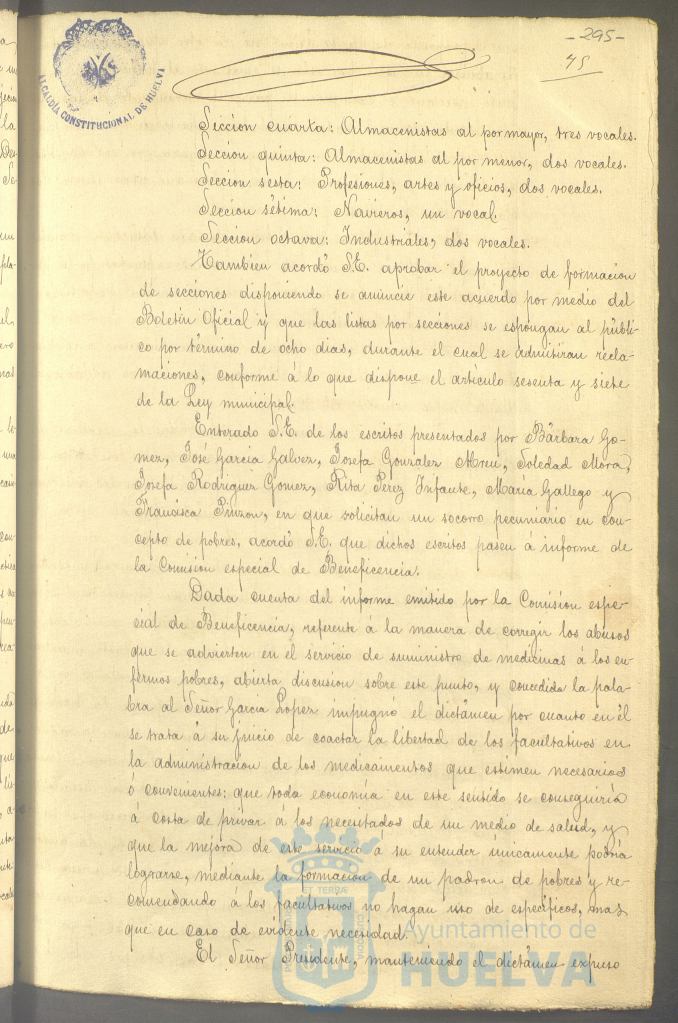 -295-
45
ALCALDÍA CONSTITUCIONAL DE HUELVA
Seccion cuarta: Almacenistas al por mayor, tres vocales.
Seccion quinta: Almacenistas al por menor, dos vocales.
Seccion sesta: Profesiones, artes y oficios, dos vocales.
Seccion sétima: Navieros, un vocal.
Seccion octava: Industriales, dos vocales.
Tambien acordó S.E. aprobar el proyecto de formacion
de secciones disponiendo se anuncie este acuerdo por medio del
Boletin Oficial y que las listas por secciones se espongan al públi-
co por término de ocho dias, durante el cual se admitiran recla-
maciones, conforme á lo que dispone el artículo sesenta y siete
de la Ley municipal.
Enterado S.E. de los escritos presentados por Bárbara Go-
mez, José Garcia Galvez, Josefa Gonzalez Mreu, Soledad Mora,
Josefa Rodriguez Gomez, Rita Perez Infante, María Gallego y
Francisca Pinzon, en que solicitan un socorro pecuniario en con-
cepto de pobres, acordó S.E. que dichos escritos pasen á informe de
la Comision especial de Beneficencia.
Dada cuenta del informe emitido por la Comision espe-
cial de Beneficencia, referente á la manera de corregir los abusos
que se advierten en el servicio de suministro de medicinas á los en-
fermos pobres, abierta discusion sobre este punto, y concedida la pala-
bra al Señor Garcia Lopez impugnó el dictámen por cuanto en él
se trata á su juicio de coactar la libertad de los facultativos en
la administracion de los medicamentos que estimen necesarios
ó convenientes: que toda economía en este sentido se conseguiria
á costa de privar á los necesitados de un medio de salud, y
que la mejora de este servicio á su entender unicamente podria
lograrse, mediante la formacion de un padron de pobres y re-
comendando á los facultativos no hagan uso de específicos, mas
que en caso de evidente necesidad.
El Señor Presidente, manteniendo el dictámen expuso
Ayuntamiento de
HUELVA